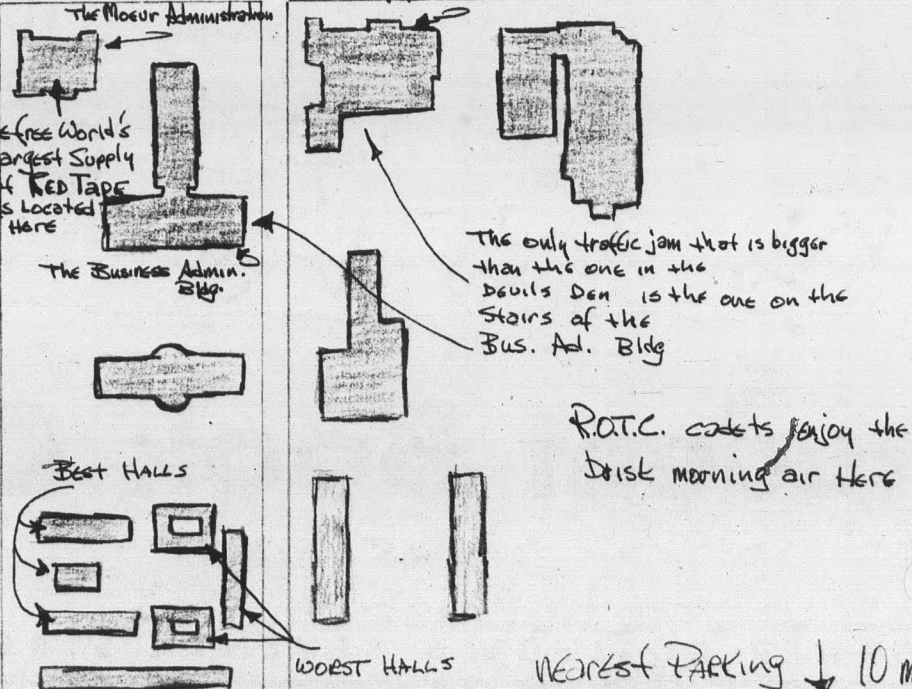 The Moeur Administration
e free World's
argest Supply
f RED TAPE
s Located
Here
The Business Admin.
Bldg.
The only traffic jam that is bigger
than the one in the
Devils Den is the one on the
Stairs of the
Bus. Ad. Bldg
R.O.T.C. cadets enjoy the
brisk morning air Here
Best Halls
Worst Halls
Nearest Parking ↓ 10 m